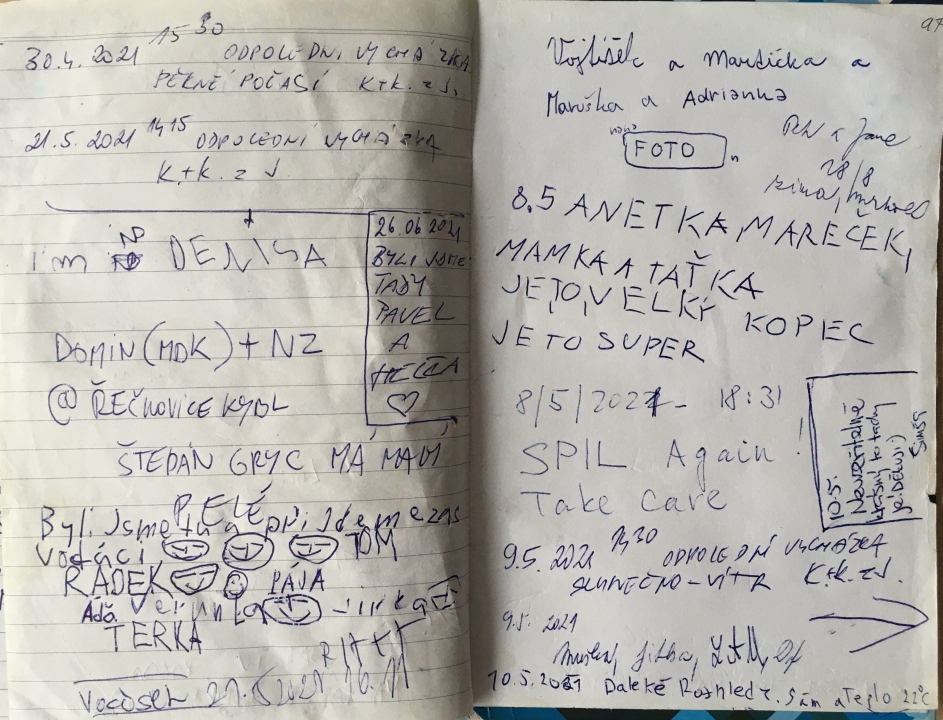 30.4. 2021 15 30 ODPOLEDNI VYCHÁZKA
PĚKNÉ POČASÍ K+K. z J.
21.5. 2021 14 15 ODPOLEDNÍ VYCHÁZKA
K+K. z J.
im DENISA
26.06 2021
BYLI JSME
TADY
PAVEL
A
♡
DOMIN (MDK) + NZ
@ ŘEČKOVICE KYBL
ŠTEPÁN GRYC MÁ MALÝ
PELÉ
Byli jsme tu a přijdeme zas
Vodáci TOM
RADEK PÁJA
Áďa Verunka Jirka
TERKA
97
Vojtíšek a Mardička a
Maruška a Adrianka
FOTO
28/8
8.5 ANETKA, MAREČEK,
MAMKA A TAŤKA
JE TO, VELKÝ KOPEC
JE TO SUPER
8/5/2021 - 18:31
SPIL Again!
Take care
10.5.
Neuvěřitelně
krásný to tady
je děkuji)
Šimša
9.5. 2021 14 30 ODPOLEDNÍ VYCHÁZKA
SLUNEČNO - VÍTR K+K. z J.
9.5. 2021
Jitka,
10.5.2021 Daleké Rozhledy. Sám a Teplo 22°C